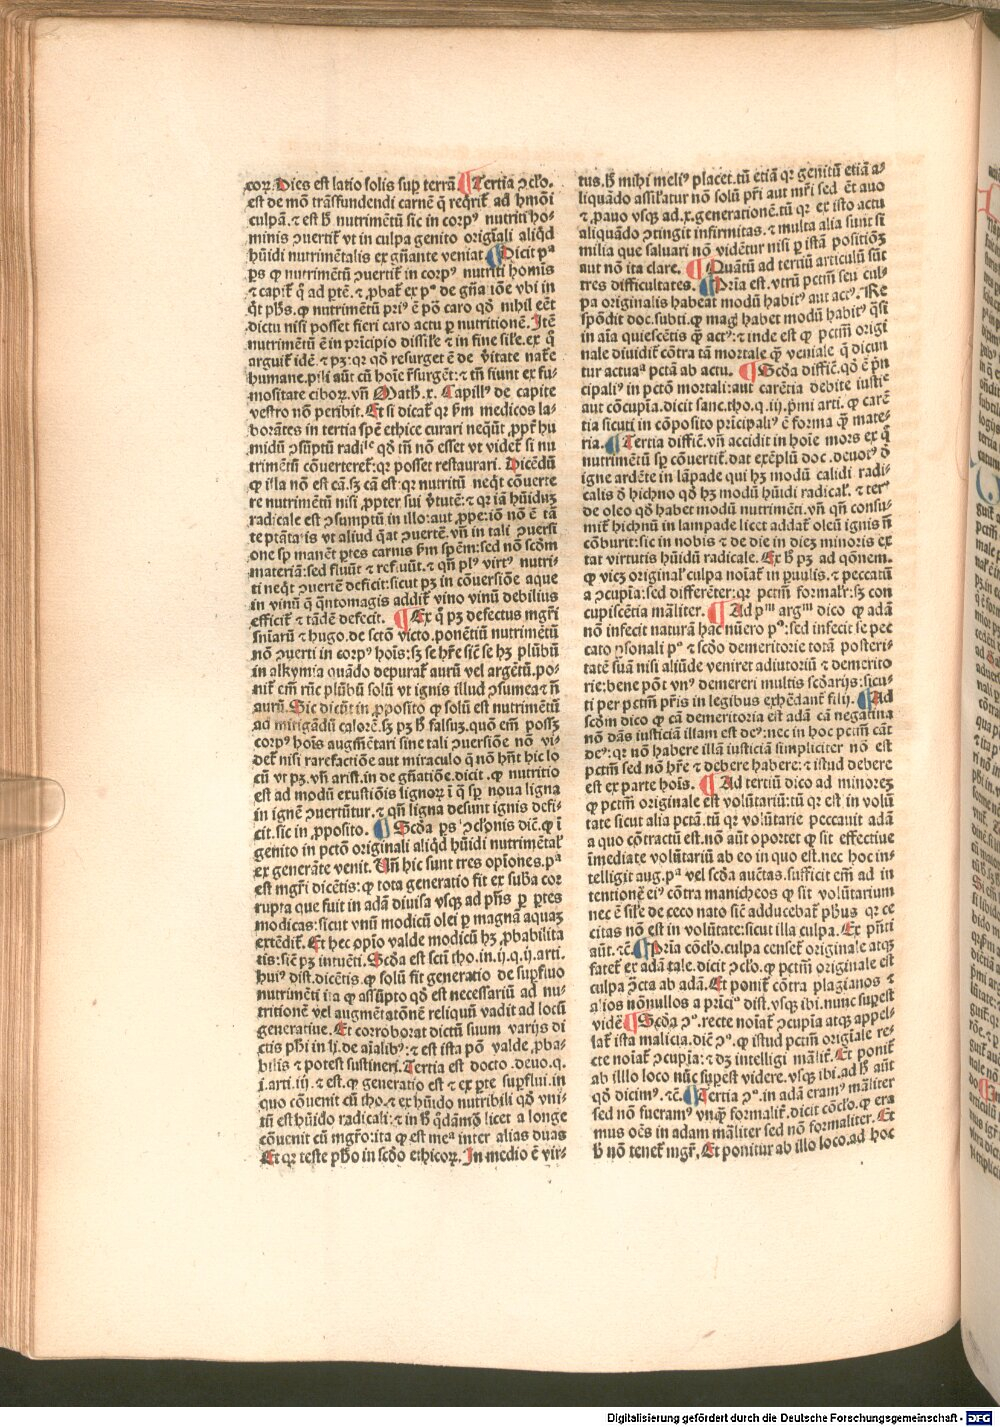 coꝝ. Dies est latio solis sup terrā. ¶ Tertia ꝯclo.
est de mō trāsfundendi carnē q̄ reqrit᷑ ad hmōi
culpā. ⁊ est h̄ nutrimētū sic in corpꝰ nutriti ho-
minis ꝯuertit᷑ vt in culpa genito origīali aliqd
hūidi nutrimētalis ex gn̄ante veniat ¶ Dicit pᵃ
ps ꝙ nutrimētū ꝯuertit᷑ in corpꝰ nutriti homīs
⁊ capit᷑ q̄ ad ptē. ⁊ ꝓbat᷑ ex pº de gn̄a iōe vbi in
q̄t phs. ꝙ nutrimētū priꝰ ē pō caro qd nihil eēt
dictu nisi posset fieri caro actu p nutritionē. Itē
nutrimētū ē in pricipio dissile ⁊ in fine sile. ex q̄
arguit᷑ idē. ⁊ pꝫ: qr qd resurget ē de v̄itate nat᷑e
humane. pili aūt cū hoīe r̄surgēt: ⁊ tn̄ siunt ex fu-
mositate ciboꝝ. vn̄ Math. x. Capillꝰ de capite
vestro nō peribit. Et si dicat᷑ qr s̄m medicos la-
borātes in tertia spē ethice curari neqūt ꝓpt᷑ hu
midū ꝯsūptū radile qd tn̄ nō esset vt videt᷑ si nu
trimētū cōuerteret᷑: qr posset restaurari. Dicēdū
ꝙ illa nō est cā. sꝫ cā est: qr nutritū neqt cōuerte
re nutrimētū nisi ꝓpter sui v̄tutē: ⁊ qr iā hūidū
radicale est ꝯsumptū in illo: aut ꝓpe: iō nō ē tā
te ptātꝭ vt aliud q̄at ꝯuertē. vn̄ in tali ꝯuersi
one sp manēt ptes carnis s̄m spēm: sed nō scdm
materiā: sed fluūt ⁊ refluūt. ⁊ qn̄ plꝰ virtꝰ nutri-
ti neqt ꝯuertē deficit: sicut pꝫ in cōuersiōe aque
in vinū q̄ q̄ntomagis addit᷑ vino vinū debilius
efficit᷑ ⁊ tādē defecit. ¶ Ex q̄ pꝫ defectus mgr̄i
sn̄iarū ⁊ hugo. de sctō victo. ponētiū nutrimētū
nō ꝯuerti in corpꝰ hoīs: sꝫ se hr̄e siē se hꝫ plūbū
in alkymia quādo depurat᷑ aurū vel argētū. po-
nit᷑ em̄ tūc plūbū solū vt ignis illud ꝯsumeat ⁊ n̄
aurū. Sic dicūt in ꝓposito ꝙ solū est nutrimētū
ad mitigādū calorē. sꝫ pꝫ h̄ falsuꝫ. quō em̄ possꝫ
corpꝰ hoīs augmētari sine tali ꝯuersiōe nō vi-
det᷑ nisi rarefactiōe aut miraculo q̄ nō hn̄t hic lo
cū vt pꝫ. vn̄ arist. in de gn̄atiōe. dicit. ꝙ nutritio
est ad modū exustiōis lignoꝝ i q̄ sp noua ligna
in ignē ꝯuertūtur. ⁊ qn̄ ligna desunt ignis defi-
cit. sic in ꝓposito. ¶ Scda ps ꝯclonis dicē. ꝙ ī
genito in pctō originali aliqd hūidi nutrimētal᷑
ex generāte venit. Vn̄ hic sunt tres opiōnes. pᵃ
est mgr̄i dicētis: ꝙ tota generatio fit ex suba cor
rupta que fuit in adā diuisa vsqꝫ ad pn̄s p ptes
modicas: sicut vnū modicū olei p magnā aquaꝫ
extēdit᷑. Et hec opio valde modicū hꝫ ꝓbabilita
tis: siē pꝫ intuēti. Scda est scti tho. in. ij. q. ij. arti.
huiꝰ dist. dicētis. ꝙ solū fit generatio de supfluo
nutrimēti ita ꝙ assūpto qd est necessariū ad nu-
tritionē vel augmētatōnē reliquū vadit ad locū
generatiue. Et corroborat dictū suum varijs di
ctis phi in li. de aīalibꝰ: ⁊ est ista pō valde ꝓba-
bilis ⁊ potest sustineri. Tertia est docto. deuo. q.
i. arti. iij. ⁊ est. ꝙ generatio est ⁊ ex pte supflui. in
quo cōuenit cū tho. ⁊ ex hūido nutribili qd vni-
tū est hūido radicali: ⁊ in h̄ q̄dāmō licet a longe
cōuenit cū mgr̄o: ita ꝙ est meᵃ inter alias duas
Et qr teste pho in scdo ethicoꝝ. In medio ē vir-
tus. h̄ mihi meliꝰ placet. tū etiā qr genitū etiā a-
liquādo assilatur nō solū pri̅ aut mr̄i sed ēt auo
⁊ ꝓauo vsqꝫ ad. x. generationē. tū qr ex isto actu
aliquādo ꝯtingit infirmitas. ⁊ multa alia sunt si
milia que saluari nō vidētur nisi p istā positiōꝫ
aut nō ita clare. ¶ Quātū ad tertiū articulū sūt
tres difficultates. ¶ Pria est. vtrū pctm̄ seu cul-
pa originalis habeat modū habitꝰ aut actꝰ. Re
spōdit doc. subti. ꝙ magꝭ habet modū habitꝰ q̄si
in aīa quiescētis q̄ actꝰ: ⁊ inde est ꝙ pctm̄ origi
nale diuidit᷑ cōtra tā mortale q̄ veniale q̄ dicun
tur actuaᵃ pctā ab actu. ¶ Scda diffic̄. qd ē p̄n
cipaliꝰ in pctō mortali: aut carētia debite iustie
aut cōcupia. dicit sanc. tho. q. iij. p̄mi arti. ꝙ carē
tia sicuti in cōposito pricipaliꝰ ē forma q̄ mate-
ria. ¶ Tertia diffic̄. vn̄ accidit in hoīe mors ex q̄
nutrimētū sp cōuertit᷑. dat exēplū doc. deuotꝰ d
igne ardēte in lāpade qui hꝫ modū calidi radi-
calis d hichno qd hꝫ modū hūidi radical᷑. ⁊ terᵒ
de oleo qd habet modū nutrimēti. vn̄ qn̄ consu-
mit᷑ hichnū in lampade licet addat᷑ oleū ignis n̄
cōburit: sic in nobis ⁊ de die in dieꝫ minoris ex
tat virtutis hūidū radicale. Et h̄ pꝫ ad q̄onem.
ꝙ vicꝫ original᷑ culpa noīat᷑ in puulis. ⁊ peccatū
a ꝯcupia: sed differēter: qr pctm̄ formalr̄: sꝫ con
cupiscētia mālr̄iter. ¶ Ad pᵐ argᵐ dico ꝙ adā
nō infecit naturā hac nūero pᵃ: sed infecit se pec
cato ꝑsonali pᵒ ⁊ scdo demeritorie totā posteri-
tatē suā nisi aliūde veniret adiutoriū ⁊ demerito
rie: bene pōt vnꝰ demereri multis scdarijs: sicu-
ti per pctm̄ pri̅s in legibus exhēdant᷑ filij. ¶ Ad
scdm dico ꝙ cā demeritoria est adā cā negatiua
nō dās iusticiā illam est deꝰ: nec in hoc pctm̄ cāt
deꝰ: qr nō habere illā iusticiā simpliciter nō est
pctm̄ sed nō hr̄e ⁊ debere habere: ⁊ istud debere
est ex parte hoīs. ¶ Ad tertiū dico ad minoreꝫ
ꝙ pctm̄ originale est volūtariū: tū qr est in volū
tate sicut alia pctā. tū qr volūtarie peccauit adā
a quo cōtractū est. nō aūt oportet ꝙ sit effectiue
īmediate volūtariū ab eo in quo est. nec hoc in-
telligit aug. pᵃ vel scda auctas. sufficit em̄ ad in
tentionē eiꝰ cōtra manicheos ꝙ sit volūtarium
nec ē sile de ceco nato siē adducebat᷑ phus qr ce
citas nō est in volūtate: sicut illa culpa. Ex pn̄ti
aūt. ⁊c̄. ¶ Pria cōclo. culpa censet᷑ originale atqꝫ
fatet᷑ ex adā tale. dicit ꝯclo. ꝙ pctm̄ originale est
culpa ꝯcta ab adā. Et ponit᷑ cōtra plagianos ⁊
alios nōnullos a priciº dist. vsqꝫ ibi. nunc supest
vidē ¶ Scda ꝯᵒ. recte noīat᷑ ꝯcupia atqꝫ appel-
lat᷑ ista malicia. dicē ꝯᵒ. ꝙ istud pctm̄ origīale re-
cte noīat᷑ ꝯcupia: ⁊ dꝫ intelligi mālit᷑. Et ponit᷑
ab illlo loco nūc supest videre. vsqꝫ ibi. ad h̄ aūt
qd dicimꝰ. ⁊c̄. ¶ Tertia ꝯᵒ. in adā eramꝰ māliter
sed nō fueramꝰ vnqꝫ formalit᷑. dicit cōclo. ꝙ era
mus oēs in adam māliter sed nō formaliter. Et
h̄ nō tenet᷑ mgr̄. Et ponitur ab illo loco. ad hoc
Digitalisierung gefördert durch die Deutsche Forschungsgemeinschaft - DFG